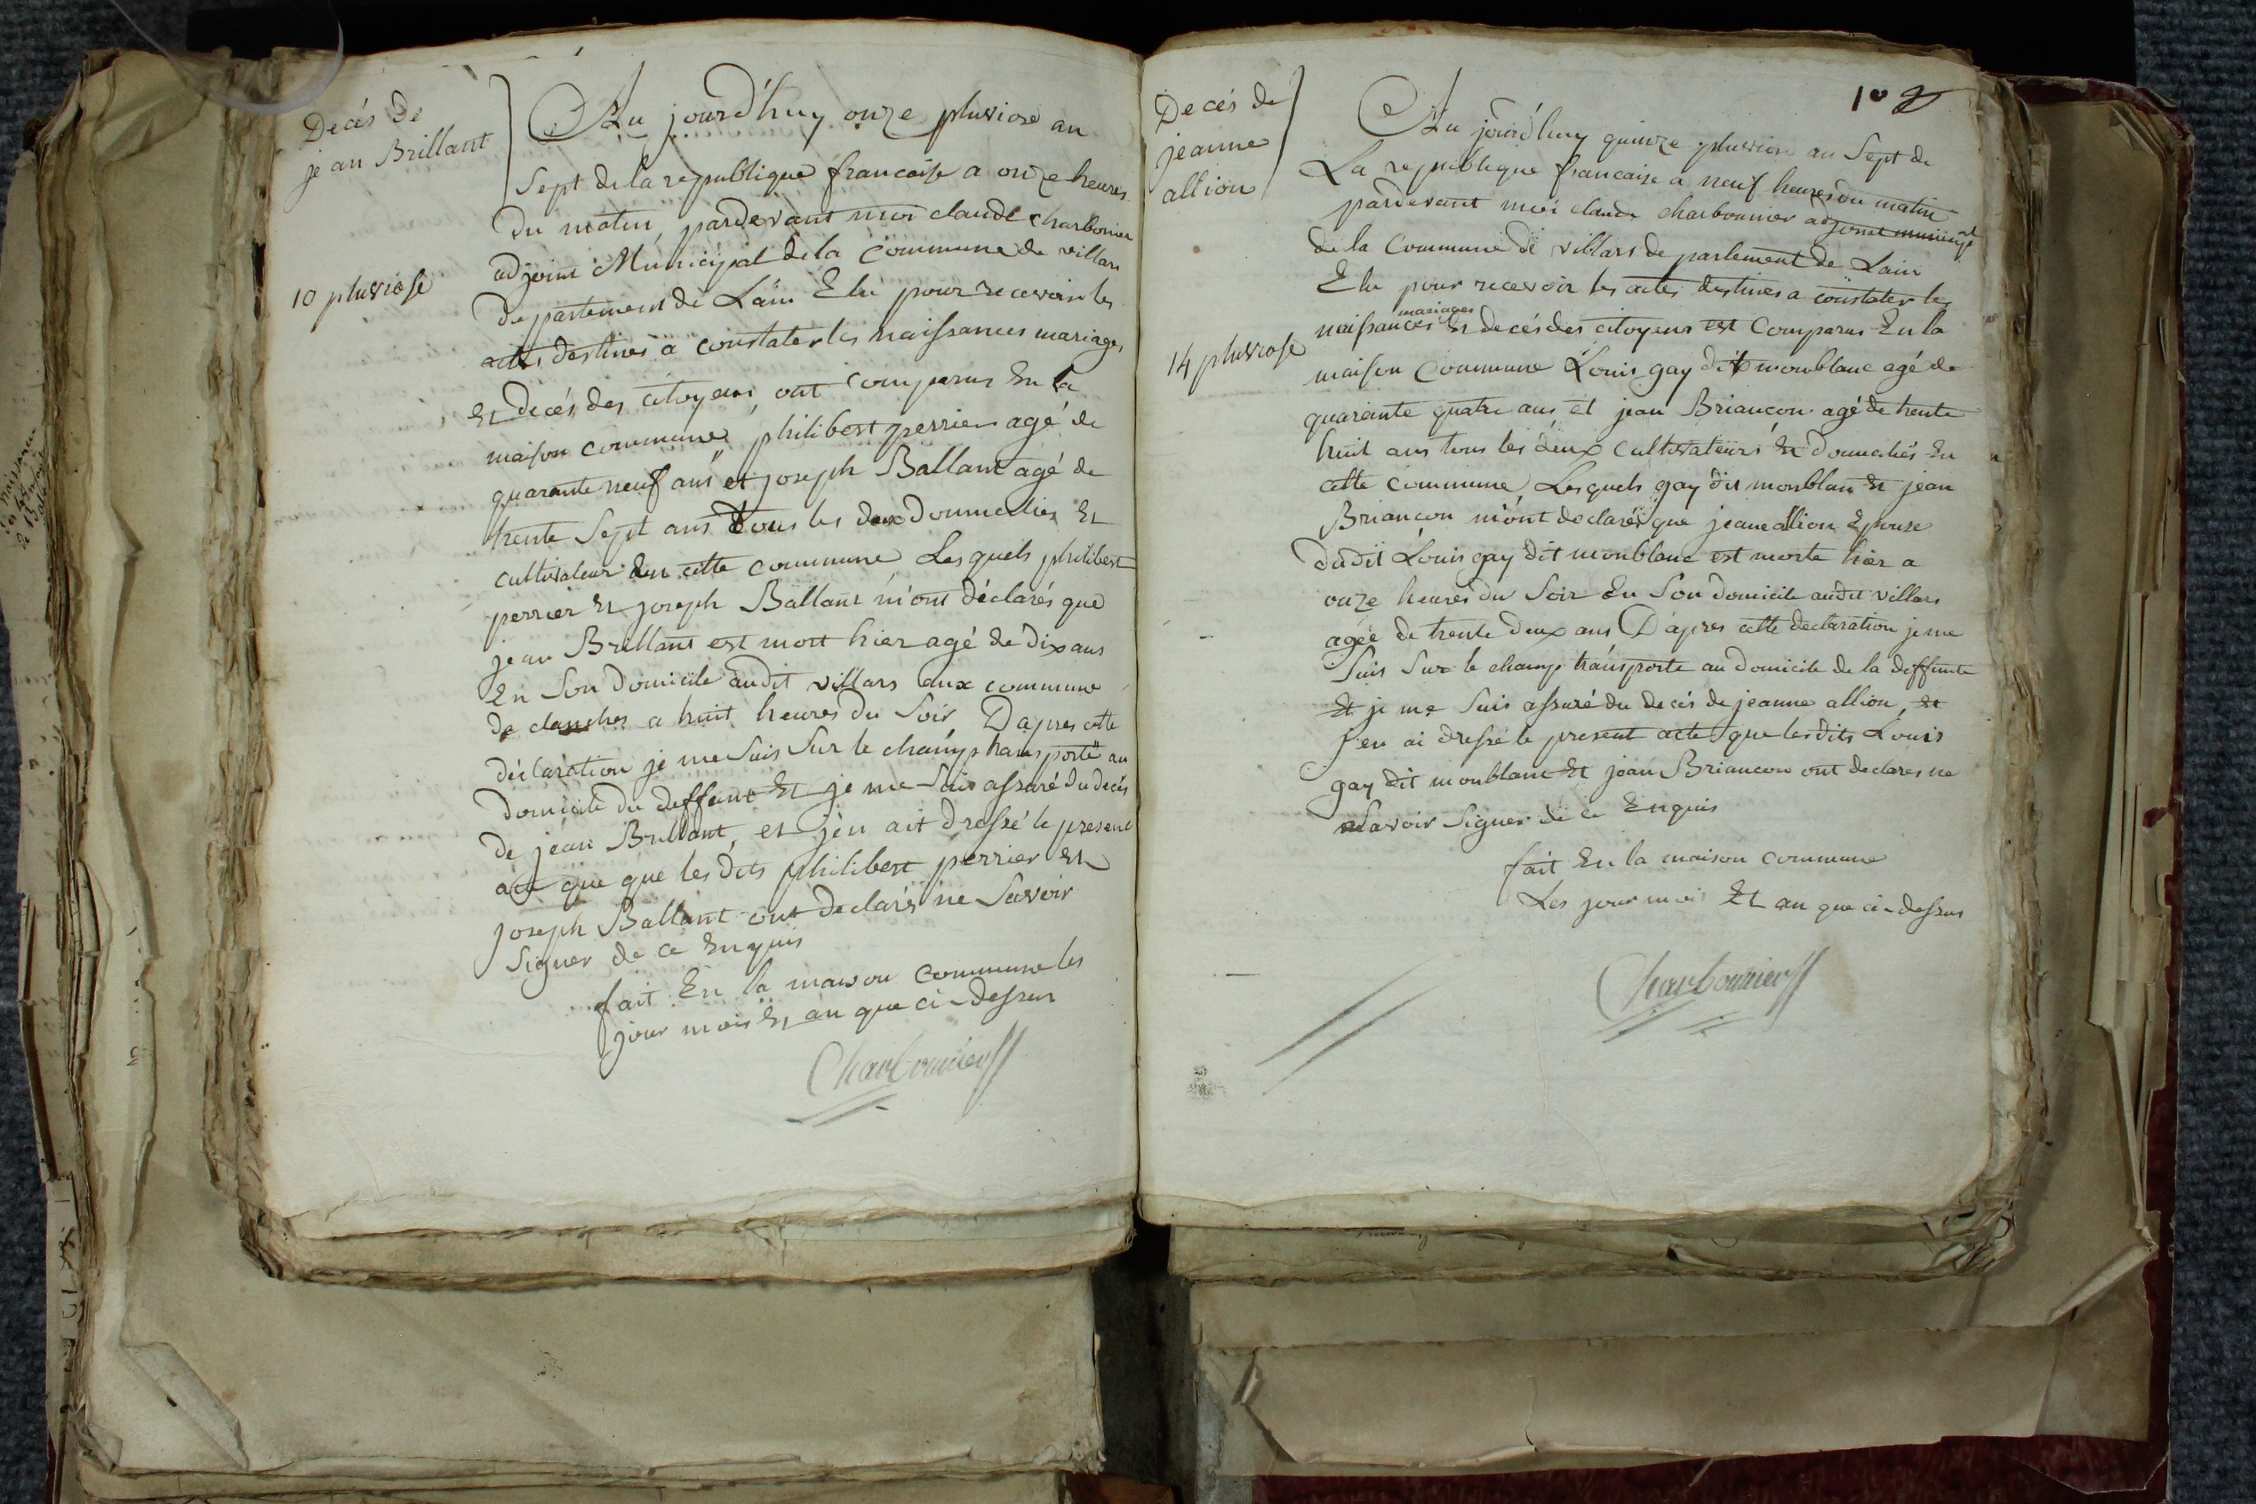 Decés de
jean Brillant
10 pluviose
Au jourd'huy onze pluviose an
Sept de la republique francaise a onze heures
du matin, pardevant moi claude charbonier
adjoint Municipal de la Commune de villars
departement de Lain Elu pour recevoir les
actes destinés a constater les naissances mariages
Et decés des citoyens ont comparus En la
maison commune, philibert perrier agé de
quarante neuf ans et joseph Ballant agé de
trente Sept ans tous les deux Domiciliés Et
cultivateur En cette commune Lesquels philibert
perrier Et joseph Ballant m'ont déclarés que
jean Brillant est mort hier agé de dix ans
En Son domicile audit villars aux commune
de a huit heures du Soir, D'apres cette
déclaration je me Suis Sur le champ transporté au
domicile du deffunt Et je me Suis assuré du decés
de jean Brillant, et j'en ait dressé le present
acte que que les dits philibert perrier Et
joseph Ballant ont declarés ne Savoir
Signer de ce Enquis
fait En la maison commune les
jour mois Et an que ci-dessus
Charbonnier
Decés de
jeanne
allion
14 pluviose
Au jourd'huy quinze pluviose an Sept de
La republique francaise a neuf heures du matin
pardevant moi claude charbonnier adjoint municipal
de la Commune de villars departement de Lain
Elu pour recevoir les actes destinés a constater les
mariages
naissances Et decés des citoyens est Comparus En la
maison Commune Louis gay dit monblanc agé de
quarante quatre ans et jean Briancon agé de trente
huit ans tous les deux cultivateurs Et domiciliés En
cette commune, Lesquels gay dit monblanc Et jean
Briancon m'ont declarés que jeanne allion Epouse
dudit Louis gay dit monblanc est morte hier a
onze heures du Soir En Son domicile audit villars
agée de trente deux ans D'apres cette declaration je me
Suis Sur le champ transporte au domicile de la deffunte
Et je me Suis assuré du decés de jeanne allion, Et
j'en ai dressé le present acte que lesdits Louis
gay dit monblanc Et jean Briancon ont declares ne
Savoir Signer de ce Enquis
fait En la maison commune
Les jour mois Et an que ci-dessus
Charbonnier